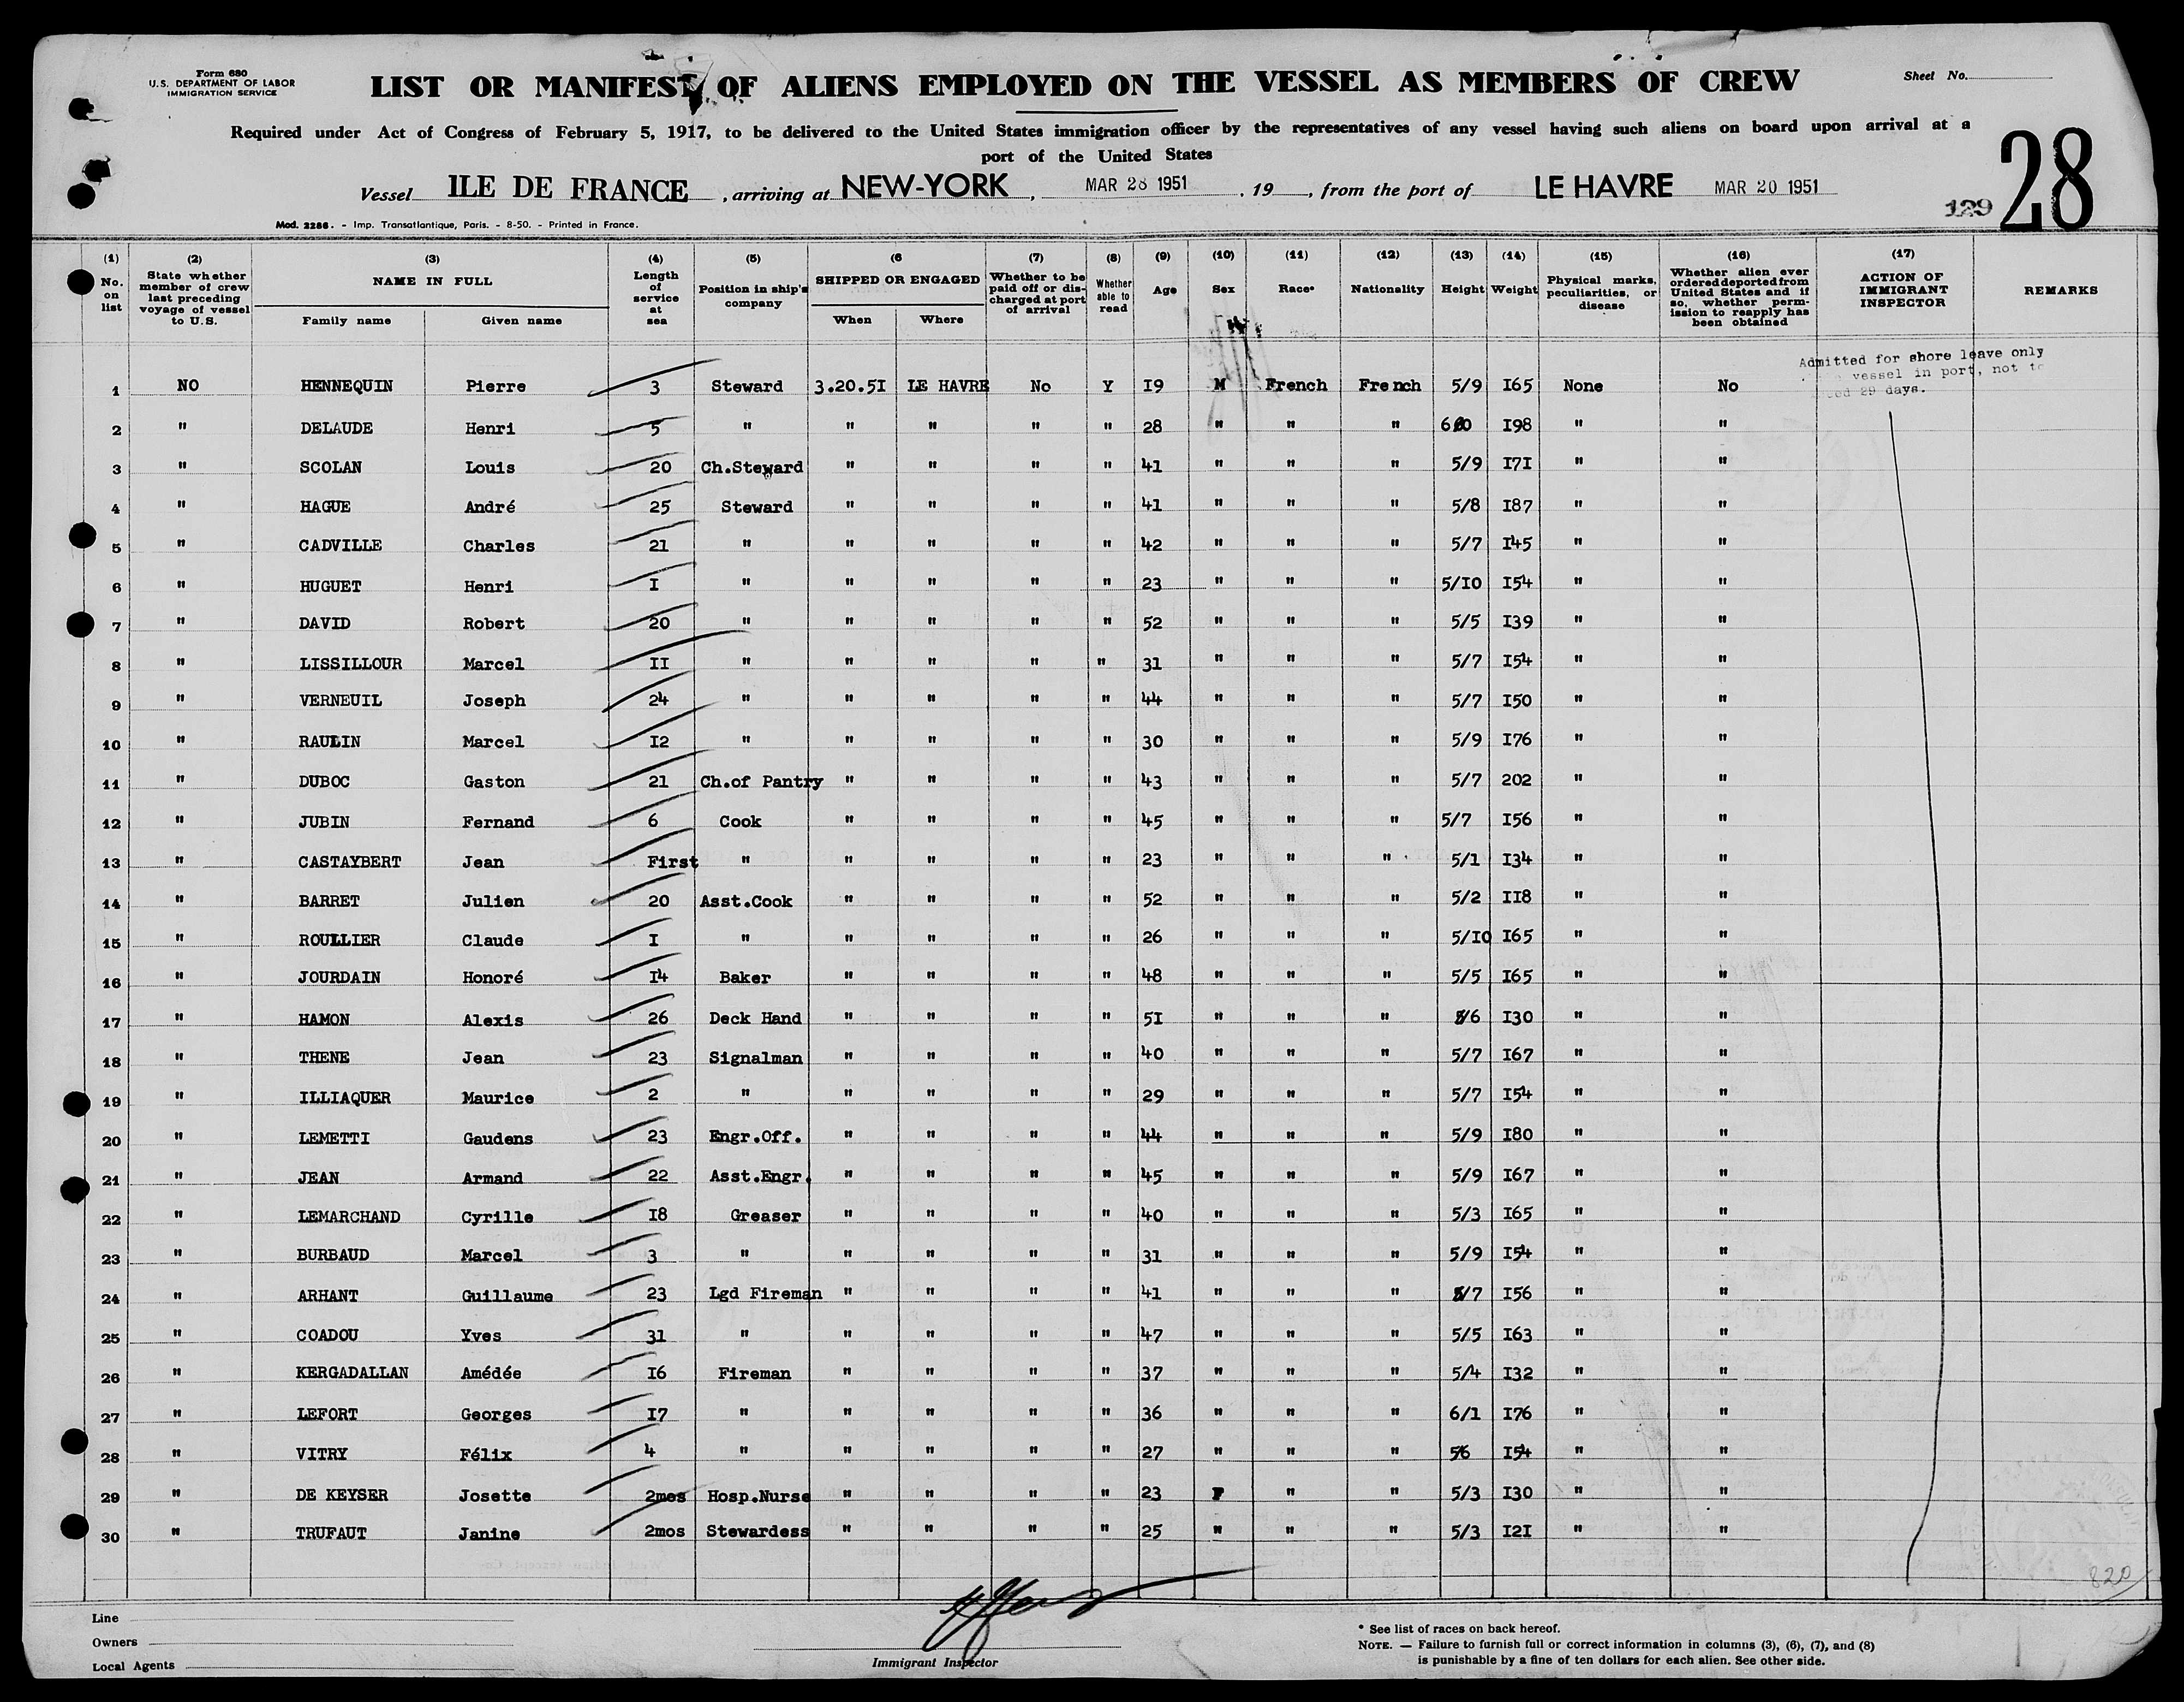 Form 680
U.S. DEPARTMENT OF LABOR
IMMIGRATION SERVICE
LIST OR MANIFEST OF ALIENS EMPLOYED ON THE VESSEL AS MEMBERS OF CREW
Sheet No.
Required under Act of Congress of February 5, 1917, to be delivered to the United States immigration officer by the representatives of any vessel having such aliens on board upon arrival at a
port of the United States
28
Vessel ILE DE FRANCE , arriving at NEW-YORK , MAR 28 1951 , 19 , from the port of LE HAVRE MAR 20 1951
129
Mod. 2286. - Imp. Transatlantique, Paris. - 8-50. - Printed in France.
(1) No. on list
(2) State whether member of crew last preceding voyage of vessel to U.S.
(3) NAME IN FULL Family name Given name
(4) Length of service at sea
(5) Position in ship's company
(6 SHIPPED OR ENGAGED When Where
(7) Whether to be paid off or discharged at port of arrival
(8) Whether able to read
(9) Age
(10) Sex
(11) Race*
(12) Nationality
(13) Height
(14) Weight
(15) Physical marks, peculiarities, or disease
(16) Whether alien ever ordered deported from United States and if so, whether permission to reapply has been obtained
(17) ACTION OF IMMIGRANT INSPECTOR
REMARKS
Admitted for shore leave only
vessel in port, not to
29 days.
1 NO HENNEQUIN Pierre 3 Steward 3.20.5I LE HAVRE No Y I9 M French French 5/9 I65 None No
2 " DELAUDE Henri 5 " " " " " 28 " " " 6/0 I98 " "
3 " SCOLAN Louis 20 Ch.Steward " " " " 41 " " " 5/9 I7I " "
4 " HAGUE André 25 Steward " " " " 41 " " " 5/8 I87 " "
5 " CADVILLE Charles 21 " " " " " 42 " " " 5/7 I45 " "
6 " HUGUET Henri I " " " " " 23 " " " 5/IO I54 " "
7 " DAVID Robert 20 " " " " " 52 " " " 5/5 I39 " "
8 " LISSILLOUR Marcel II " " " " " 31 " " " 5/7 I54 " "
9 " VERNEUIL Joseph 24 " " " " " 44 " " " 5/7 I50 " "
10 " RAULIN Marcel I2 " " " " " 30 " " " 5/9 I76 " "
11 " DUBOC Gaston 21 Ch.of Pantry " " " " 43 " " " 5/7 202 " "
12 " JUBIN Fernand 6 Cook " " " " 45 " " " 5/7 I56 " "
13 " CASTAYBERT Jean First " " " " " 23 " " " 5/1 I34 " "
14 " BARRET Julien 20 Asst.Cook " " " " 52 " " " 5/2 II8 " "
15 " ROULLIER Claude I " " " " " 26 " " " 5/IO I65 " "
16 " JOURDAIN Honoré I4 Baker " " " " 48 " " " 5/5 I65 " "
17 " HAMON Alexis 26 Deck Hand " " " " 5I " " " 5/6 I30 " "
18 " THENE Jean 23 Signalman " " " " 40 " " " 5/7 I67 " "
19 " ILLIAQUER Maurice 2 " " " " " 29 " " " 5/7 I54 " "
20 " LEMETTI Gaudens 23 Engr.Off. " " " " 44 " " " 5/9 I80 " "
21 " JEAN Armand 22 Asst.Engr. " " " " 45 " " " 5/9 I67 " "
22 " LEMARCHAND Cyrille I8 Greaser " " " " 40 " " " 5/3 I65 " "
23 " BURBAUD Marcel 3 " " " " " 31 " " " 5/9 I54 " "
24 " ARHANT Guillaume 23 Lgd Fireman " " " " 41 " " " 5/7 I56 " "
25 " COADOU Yves 31 " " " " " 47 " " " 5/5 I63 " "
26 " KERGADALLAN Amédée I6 Fireman " " " " 37 " " " 5/4 I32 " "
27 " LEFORT Georges I7 " " " " " 36 " " " 6/1 I76 " "
28 " VITRY Félix 4 " " " " " 27 " " " 5/6 I54 " "
29 " DE KEYSER Josette 2mos Hosp.Nurse " " " " 23 F " " 5/3 I30 " "
30 " TRUFAUT Janine 2mos Stewardess " " " " 25 " " " 5/3 I2I " "
820
Line
Owners
Local Agents
Immigrant Inspector
* See list of races on back hereof.
NOTE. — Failure to furnish full or correct information in columns (3), (6), (7), and (8)
is punishable by a fine of ten dollars for each alien. See other side.